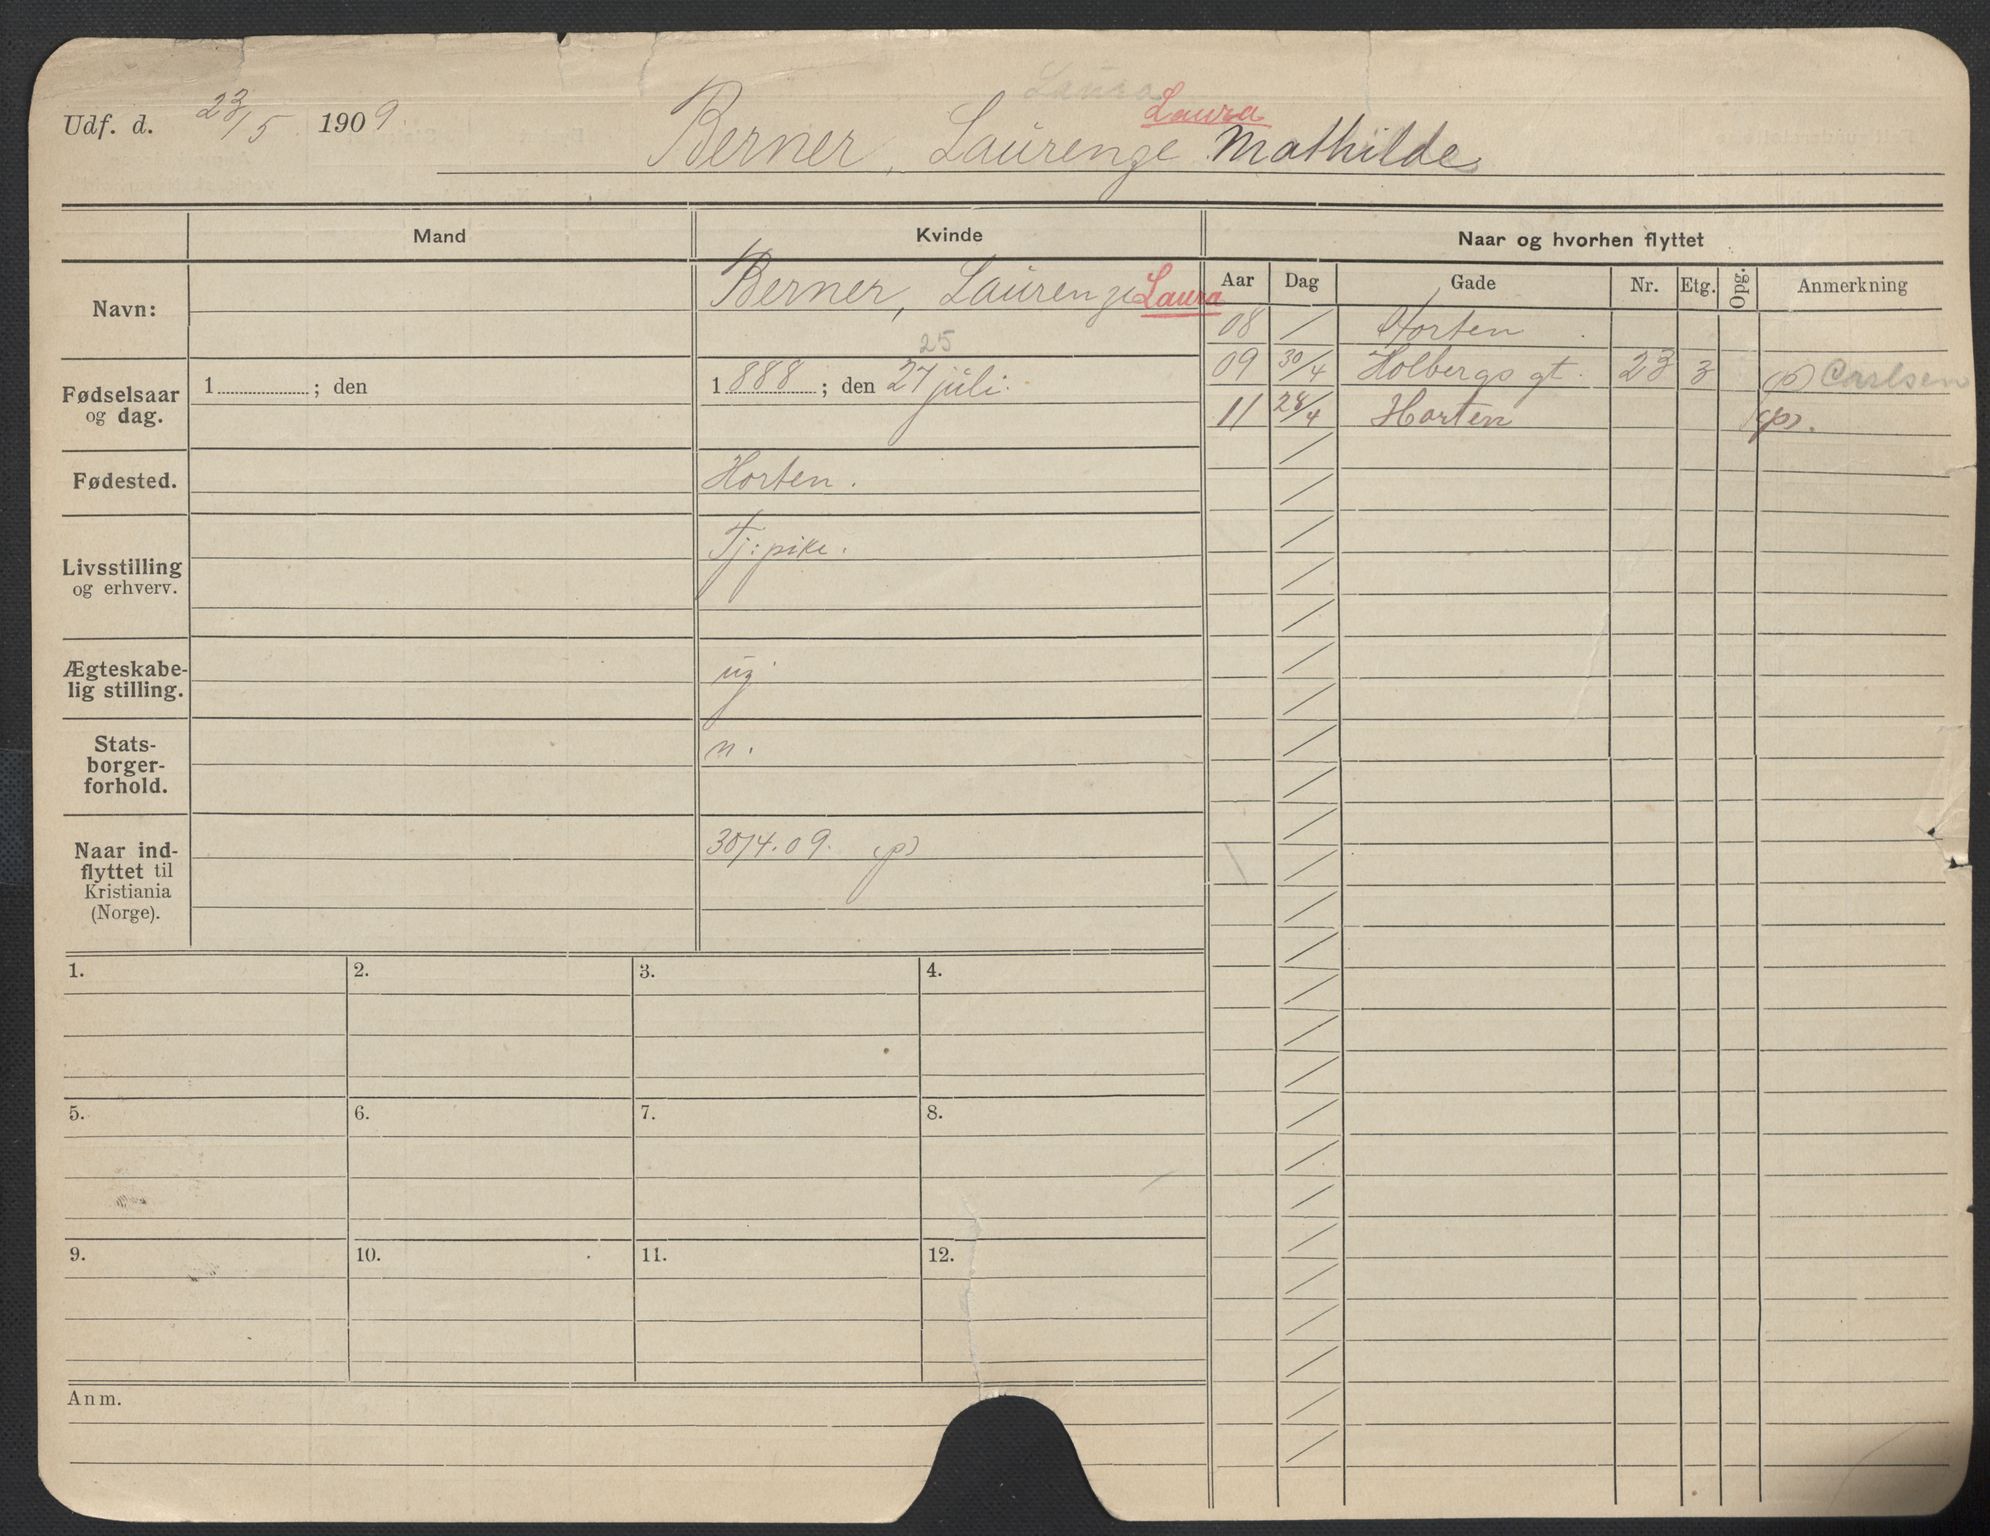 Laura
Laura
Udf. d. 23/5 1909.
Berner, Laurenze Mathilde
Mand
Kvinde
Naar og hvorhen flyttet
Navn:
Berner, Laurenze Laura
Aar Dag Gade Nr. Etg. Opg. Anmerkning
08 / Horten
09 30/4 Holbergs gt. 23 3 (p) Carlsen
11 28/4 Horten (p).
Fødselsaar
og dag.
1 ; den
25
1888 ; den 27 juli.
Fødested.
Horten.
Livsstilling
og erhverv.
Tj: pike.
Ægteskabe-
lig stilling.
ug
Stats-
borger-
forhold.
n.
Naar ind-
flyttet til
Kristiania
(Norge).
30/4.09. (p)
1. 2. 3. 4.
5. 6. 7. 8.
9. 10. 11. 12.
Anm.